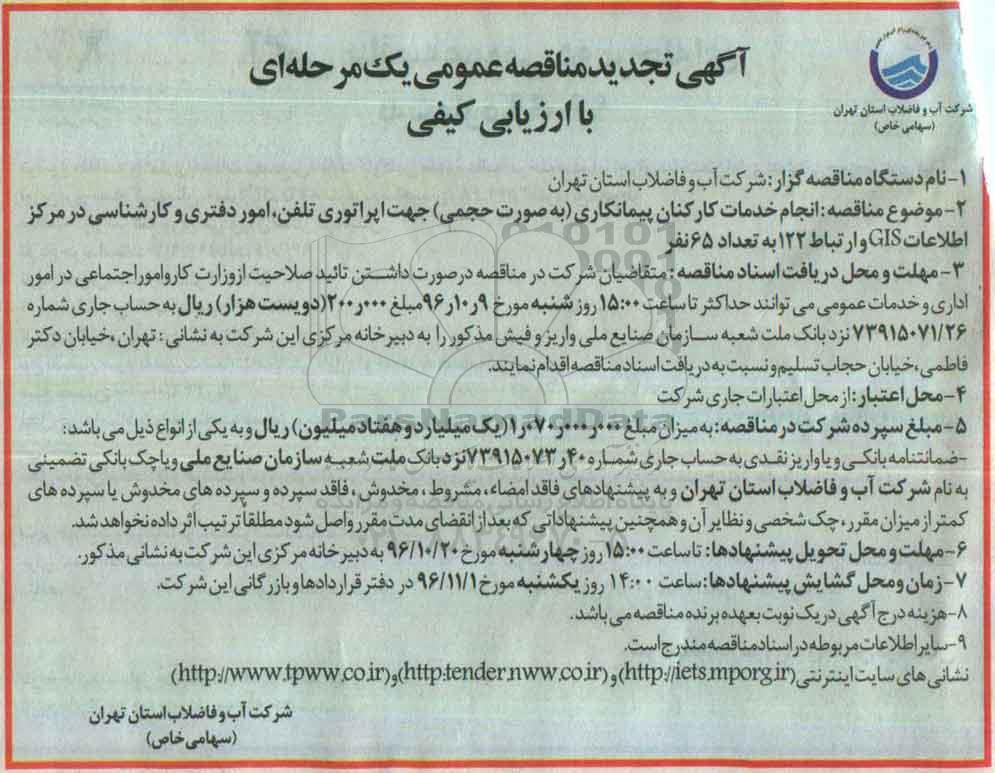 آگهی تجدید مناقصه عمومی یک مرحله‌ای
با ارزیابی کیفی
شرکت آب و فاضلاب استان تهران
(سهامی خاص)
۱- نام دستگاه مناقصه گزار: شرکت آب و فاضلاب استان تهران
۲- موضوع مناقصه: انجام خدمات کارکنان پیمانکاری (به صورت حجمی) جهت اپراتوری تلفن، امور دفتری و کارشناسی در مرکز
اطلاعات GIS و ارتباط ۱۲۲ به تعداد ۶۵ نفر
۳- مهلت و محل دریافت اسناد مناقصه: متقاضیان شرکت در مناقصه درصورت داشتن تائید صلاحیت از وزارت کار و امور اجتماعی در امور
اداری و خدمات عمومی می توانند حداکثر تا ساعت ۱۵:۰۰ روز شنبه مورخ ۹ر۱۰ر۹۶ مبلغ ۰۰۰ر۲۰۰ (دویست هزار) ریال به حساب جاری شماره
۷۳۹۱۵۰۷۱/۲۶ نزد بانک ملت شعبه سازمان صنایع ملی واریز و فیش مذکور را به دبیرخانه مرکزی این شرکت به نشانی: تهران، خیابان دکتر
فاطمی، خیابان حجاب تسلیم و نسبت به دریافت اسناد مناقصه اقدام نمایند.
۴- محل اعتبار: از محل اعتبارات جاری شرکت
ParsNamadData
۵- مبلغ سپرده شرکت در مناقصه: به میزان مبلغ ۰۰۰ر۰۰۰ر۰۷۰ر۱ (یک میلیارد و هفتاد میلیون) ریال و به یکی از انواع ذیل می باشد:
-ضمانتنامه بانکی و یا واریز نقدی به حساب جاری شماره ۴۰ر۷۳۹۱۵۰۷۳ نزد بانک ملت شعبه سازمان صنایع ملی و یا چک بانکی تضمینی
به نام شرکت آب و فاضلاب استان تهران و به پیشنهادهای فاقد امضاء، مشروط، مخدوش، فاقد سپرده و سپرده های مخدوش یا سپرده های
کمتر از میزان مقرر، چک شخصی و نظایر آن و همچنین پیشنهاداتی که بعد از انقضای مدت مقرر واصل شود مطلقا ترتیب اثر داده نخواهد شد.
۶- مهلت و محل تحویل پیشنهادها: تا ساعت ۱۵:۰۰ روز چهارشنبه مورخ ۹۶/۱۰/۲۰ به دبیرخانه مرکزی این شرکت به نشانی مذکور.
۷- زمان و محل گشایش پیشنهادها: ساعت ۱۴:۰۰ روز یکشنبه مورخ ۹۶/۱۱/۱ در دفتر قراردادها و بازرگانی این شرکت.
۸- هزینه درج آگهی در یک نوبت بعهده برنده مناقصه می باشد.
۹- سایر اطلاعات مربوطه در اسناد مناقصه مندرج است.
نشانی های سایت اینترنتی (http://iets.mporg.ir) و (http:tender.nww.co.ir) و (http://www.tpww.co.ir)
شرکت آب و فاضلاب استان تهران
(سهامی خاص)